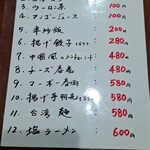 3. ウーロン茶 100円
4. マンゴージュース 100円
5. 半炒飯 200円
6. 揚げ餃子 280円
7. 中国風 480円
8. チーズ春巻 480円
9. マーボー春雨 580円
10. 揚げ手羽先 580円
11. 台湾麺 580円
12. 塩ラーメン 600円